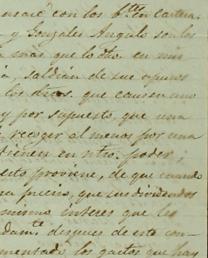 con los b.tes en Cartera
y Gonzales Angulo son los
mas que lo dho. en mis
saldran de sus apuros
los dros. que causen uno
y por supuesto que una
recoger al menos por una
tienen en ntro. poder,
esto proviene, de que cuando
su precio, que sus dividendos
mismo interes que les
después de esto con-
mentado los gastos que hay